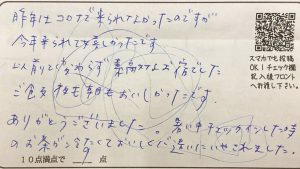 昨年はコロナで来られなかったのですが
今年来られて嬉しかったです
以前と変わらず素敵なお宿でした
ご食事 夜も朝もおいしかったです。
ありがとうございました。暑い中チェックインした時
のお茶が冷たくておいしくて 癒されました。
10点満点で 点
スマホでも投稿
OK!チェック欄
記入後フロント
へお渡し下さい。